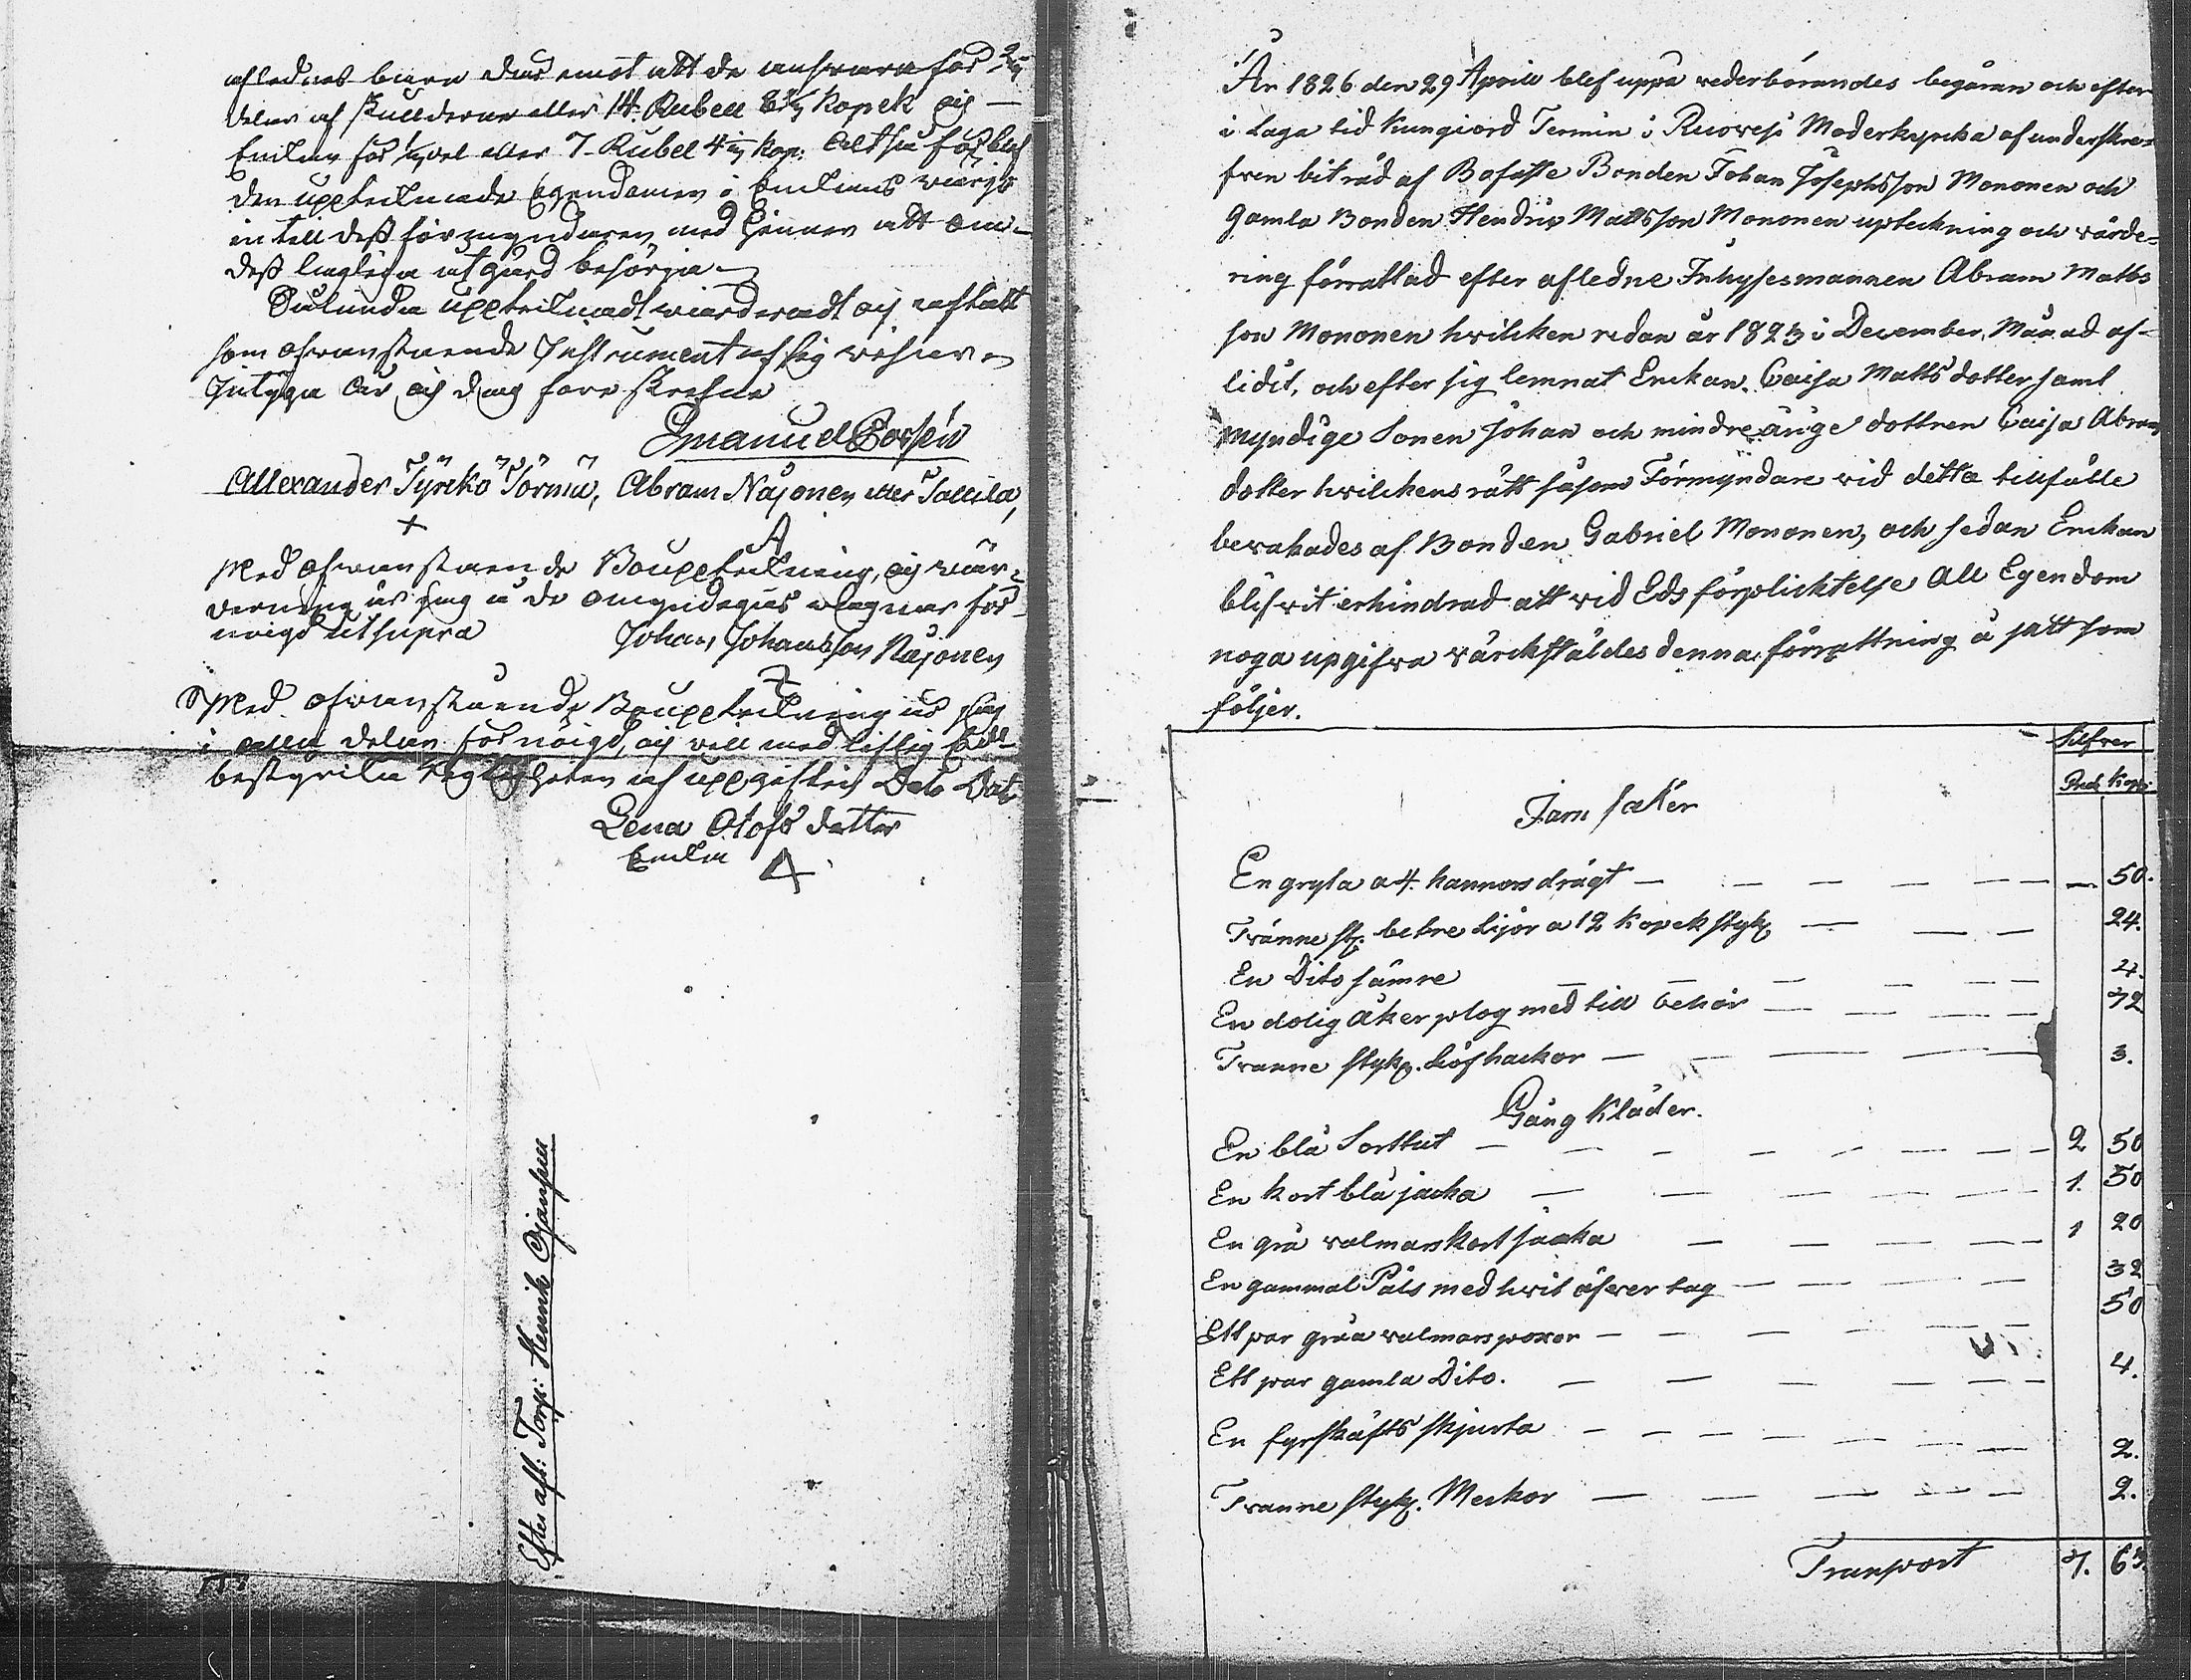 aflednes barn der emot att de answara för 2/3
delar af skullderne eller 14. Rubell 8 2/3 Kopek og
Enckan för 1/3 del eller 7. Rubel 4 1/3 kop: Altså förblef
den uppteknade Egendomen i Enckans wårjo
in till dess förmyndaren med henne att om
dess lagliga utgård besörja
Sålunda uppteknadt wärderadt og
som ofwanstående Instrument af sig wisar
Intyga År og dag förr skrefne
Emanuel Bossén
Allexander Tyrckö Törmä, Abram Näjonen eller Sallila,
+ A
Med ofwanstående Bouppteckning, og wär-
dering är jag å de omyndigas wägnar för-
nöigd ut supra Johan Johansson Näjonen
Med ofwanstående Bouppteckning är jag
i alla delar förnöigd, og vill med liflig Ed
bestyrka rigtigheten af uppgiften Dato
Lena Olofs dotter
Enckia 4
Efter afl: Torp: Henrik Ojanperä
År 1826 den 29 Aprill blef uppå wederbörandes begäran och efter
i Laga tid kungiord Termin i Ruovesi Moderkyrcka af underskre=
fven biträd af Bofaste Bonden Johan Josephsson Mononen och
Gamla Bonden Hendric Mattsson Mononen upteckning och wärde=
ring förrättad efter afledne Inhysesmannen Abram Matts
son Mononen hwilcken redan år 1823 i December Månad af-
lidit, och efter sig lemnat Enckan. Caisa Matts dotter samt
myndige Sonen Johan och mindreåuge dottren Caisa Abram
dotter hwilckens rätt såsom Förmyndare vid detta tillfälle
bewakades af Bonden Gabriel Mononen, och sedan Enckan
blifvit erhindrad att vid Eds förplicktelse All Egendom
noga upgifva värckstäldes denna förrättning å sätt som
följer.
Silfver
Rub Kop:
Jarn saker
En gryta a 4. kannors drägt — — — 50.
Tvänne st. betre Lijor a 12 Kopek styk — — 24.
En Dito sämre — — — 4.
En dolig åker plog med till behör — — — 72
Tvanne styk. Löfhackor — — — 3.
Gång Kläder.
En blå Sorttut — — — 2 50
En kort blå jacka — — — 1. 50
En grå valmans kort jacka — — — 1 20
En gammal Päls med hvit öfver tag — — — 32
Ett par gråa valmars poxor — — — 50
Ett par gamla Dito. — — — 4.
En fyrskäfts skjurta — — — 2.
Tvanne styk. Merkor — — — 2.
Transport 7. 63.